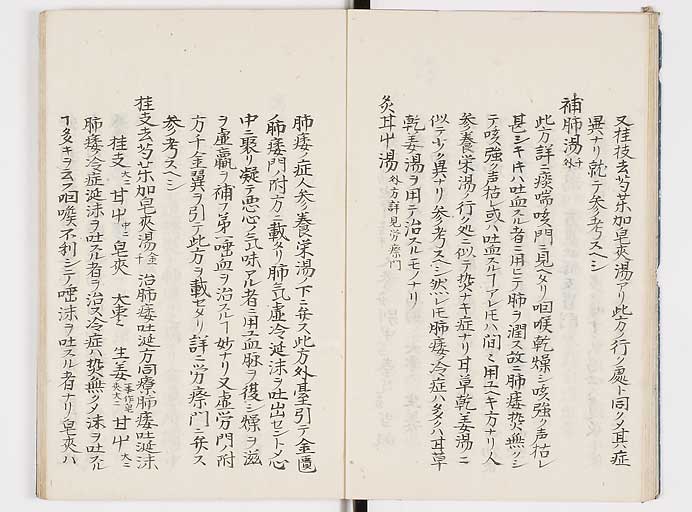 又桂枝去芍薬加皂莢湯アリ此方ク行ク處ト同クメ其症
異ナリ就テ参考スヘシ
補肺湯
此方詳ニ痰喘咳門ニ見ヘタリ咽喉乾燥シ咳強ク声枯レ
甚シキキハ吐血スル者ニ用ヒテ肺ヲ潤ス故ニ肺痿熱無クシ
テ咳強ク声枯レ或ハ吐血スルヿアレモハ間ミ用ユヘキ方ナリ人
参養栄湯ク行ク処ニ似テ熱ナキ症ナリ甘草乾姜湯ニ
似テ少ク異ナリ参考スヘシ然レモ肺痿冷症ハ多クハ甘草
乾姜湯ヲ用テ治スルモノナリ
炙甘艸湯 外方詳見労療門
肺痿ノ症人参養栄湯ノ下ニ弁ス此方外臺引テ金匱
肺痿門ノ附方ニ載タリ肺気虚冷涎沫ヲ吐出セントメ心
中ニ聚リ凝テ悪心ノ気味アル者ニ用ユ血脉ヲ復シ燥ヲ滋
ヲ虚羸ヲ補フ弟一唾血ヲ治スルヿ妙ナリ又虚労門ノ附
方千金翼ヲ引テ此方ヲ載セタリ詳ニ労療門ニ弁ス
参考スヘシ
桂支去芍薬加皂莢湯 治肺痿吐涎方同療肺痿吐涎沫
桂支 大 甘艸 中 皂莢 大棗 生姜 甘艸 大
肺痿冷症涎沫ヲ吐スル者ヲ治ス冷症ハ熱無クメ沫ヲ吐スル
ヿ多キヲ云フ咽喉不利シテ唾沫ヲ吐スル者ナリ皂莢ハ